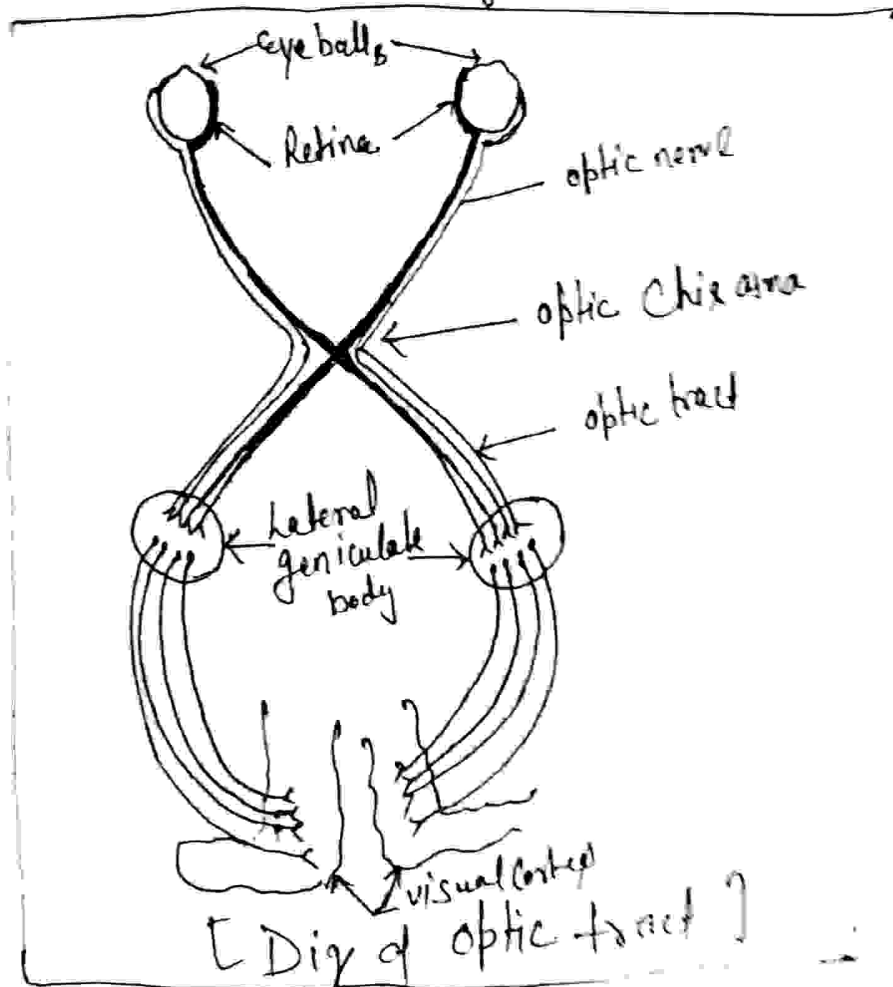 eyeballs
Retina
optic nerve
optic Chiasma
optic tract
Lateral
geniculate
body
visual Cortex
[ Dig of optic tract ]